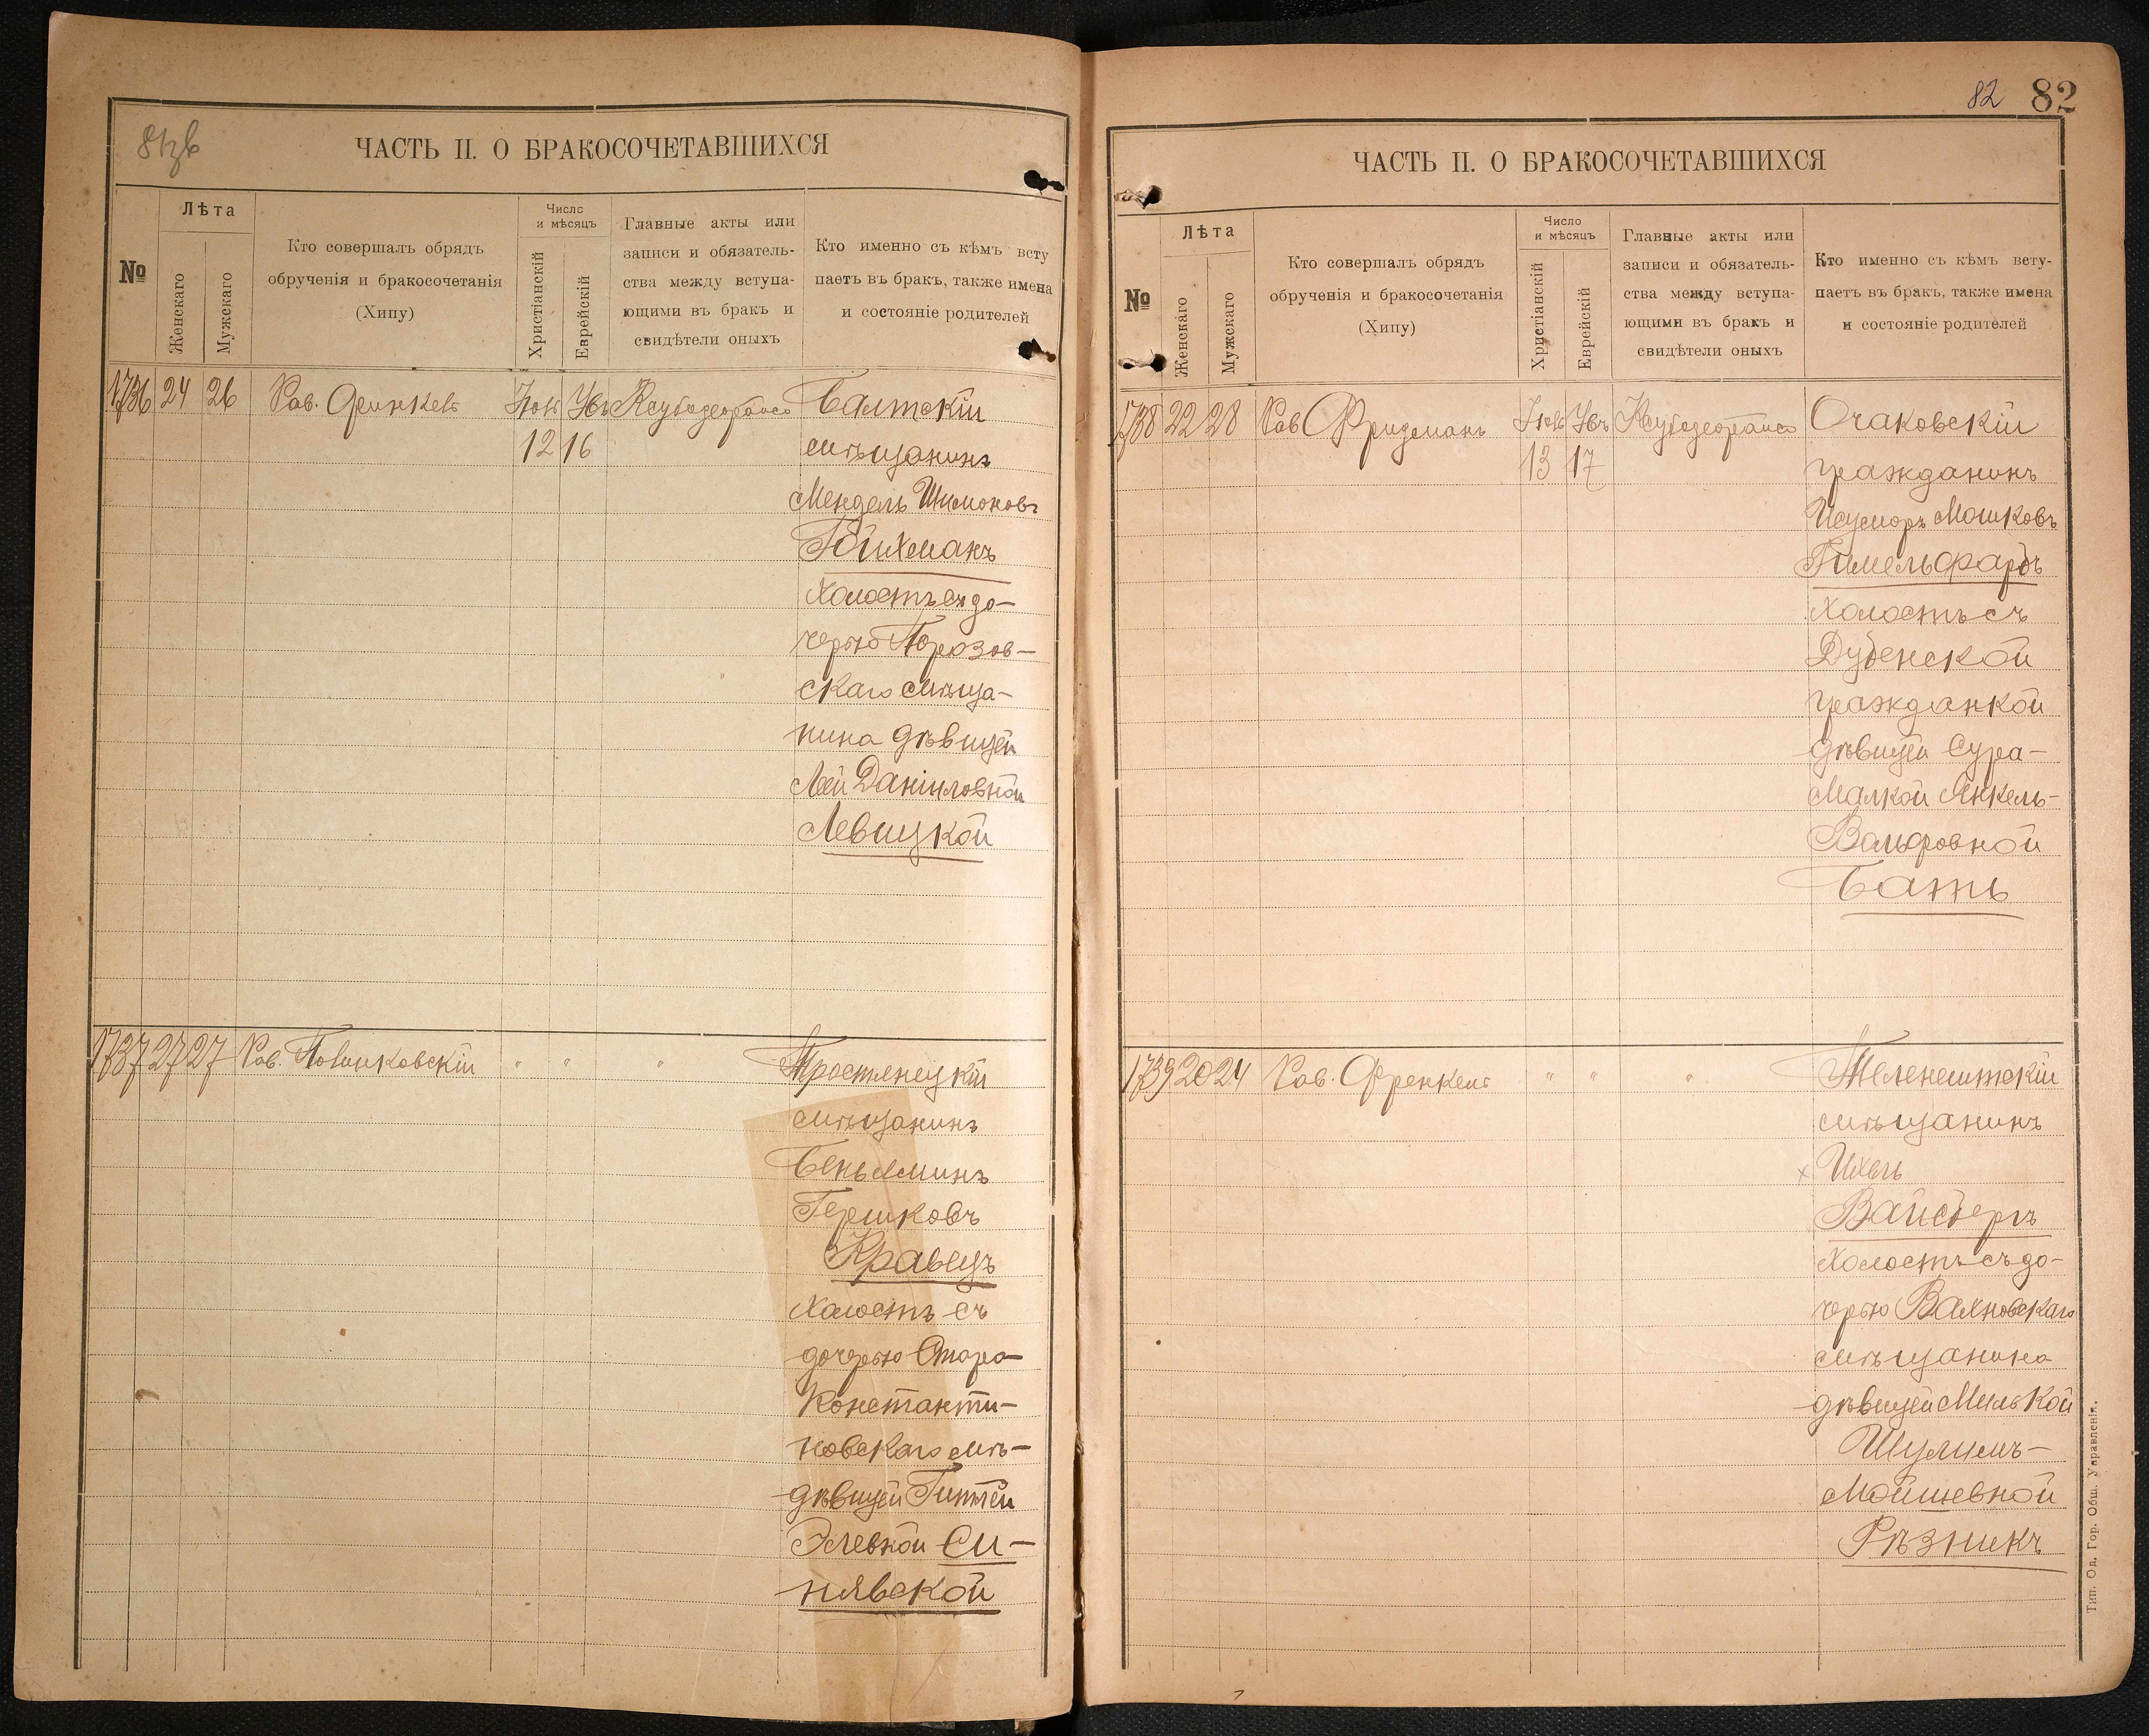 ЧАСТЬ II. О БРАКОСОЧЕТАВШИХСЯ
№
Лѣта
Женскаго
Мужскаго
Кто совершалъ обрядъ
обрученія и бракосочетанія
(Хипу)
Число
и мѣсяцъ
Христіанскій
Еврейскій
Главные акты или
записи и обязатель-
ства между вступа-
ющими въ бракъ и
свидѣтели оныхъ
Кто именно съ кѣмъ всту
паетъ въ бракъ, также имена
и состояніе родителей
1736 24 26 Рав.
12 16
Балтскій
мѣщанинъ
Мендель Шимоновъ
Гойхманъ
холостъ съ до-
черью
скаго мѣща-
нина дѣвицей
Леей Даниловной
Левицкой
1737 27 27 Рав. " " "
Тростянецкій
мѣщанинъ
Беньяминъ
Гершковъ
Кравецъ
холостъ съ
дочерью Старо-
константи-
новскаго мѣ-
дѣвицей Гитлей
Элевной Си-
нявской
82 82
ЧАСТЬ II. О БРАКОСОЧЕТАВШИХСЯ
№
Лѣта
Женскаго
Мужскаго
Кто совершалъ обрядъ
обрученія и бракосочетанія
(Хипу)
Число
и мѣсяцъ
Христіанскій
Еврейскій
Главные акты или
записи и обязатель-
ства между вступа-
ющими въ бракъ и
свидѣтели оныхъ
Кто именно съ кѣмъ всту-
паетъ въ бракъ, также имена
и состояніе родителей
1738 22 28 Рав Фридманъ
13 17
Очаковскій
гражданинъ
Мошковъ
Гимельфарбъ
холостъ съ
Дубенской
гражданкой
дѣвицей Сура-
Малкой Янкель-
Вольфовной
Батъ
1739 20 24 Рав. Френкель " " "
Теленештскій
мѣщанинъ
Ихель
Вайсбергъ
холостъ съ до-
черью Вахновскаго
мѣщанина
дѣвицей Милькой
Шулимъ-
Мойшевной
Рѣзникъ
Тип. Од. Гор. Общ. Управленія.